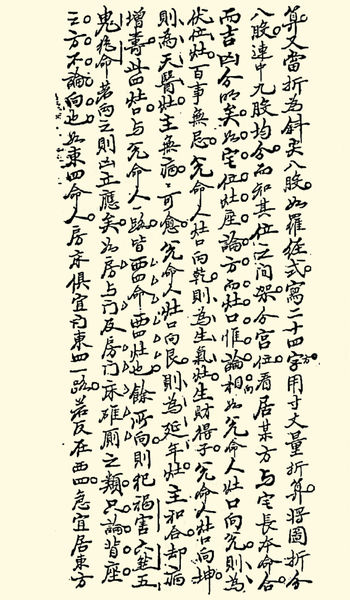 算又當折為斜爻八股如羅経式寫二十四字用寸尺量折算將圖折分
八股連中九股均分而知其位之间架分宫位看居某方与宅長本命合
而吉凶分明矣如宅位灶座論方而灶口惟論相如兑命人灶口向兑則為
伏位灶百事無忌兑命人灶口向乾則為生氣灶生財得子兑命人灶口向坤
則為天醫灶主無病可愈兑命人灶口向艮則為延年灶主和合却病
增壽此四灶口与兑命人路皆西四命西四灶也餘所向則犯禍害六煞五
鬼絶命若两之則凶立應矣如房与门及房门床碓厕之類只論背座
云方不論向也如東四命人房床俱宜向東四一路若反在西四急宜居東方